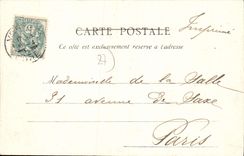 CARTE POSTALE
Ce côté est exclusivement réservé à l'adresse
Imprimé
27
Mademoiselle de la Salle
31 avenue de Saxe
Paris